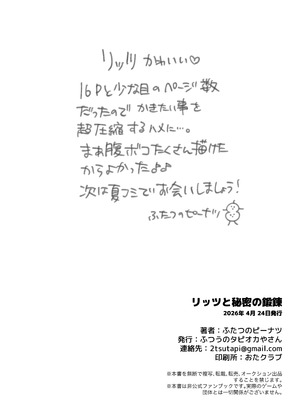 リッツ かわいい♡
16Pと少な目のページ数
だったので かきたい事を
超圧縮 するハメに…。
まぁ腹ボコたくさん描けた
からよかったよよ
次は夏コミでお会いしましょう!
ふたつのピーナツ
リッツと秘密の鍛錬
2026年 4月 24日発行
著者:ふたつのピーナツ
発行:ふつうのタピオカやさん
連絡先:2tsutapi@gmail.com
印刷所:おたクラブ
※本書を無断で複写、転載、転売、オークション出品
することを禁じます。
※本書は非公式ファンブックです。実際のゲームや
団体とは一切関係がございません。